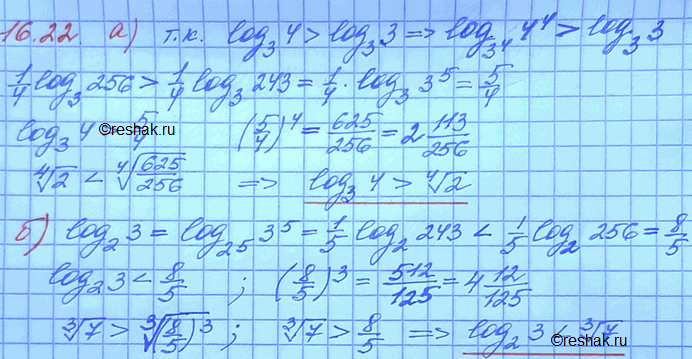 16.22. а) т.к. log₃4 > log₃3 => log₃⁴ 4⁴ > log₃3
1/4 log₃ 256 > 1/4 log₃ 243 = 1/4 · log₃ 3⁵ = 5/4
log₃ 4 5/4 (5/4)⁴ = 625/256 = 2 113/256
©reshak.ru
⁴√2 < ⁴√(625/256) => log₃ 4 > ⁴√2
б) log₂ 3 = log₂5 3⁵ = 1/5 log₂ 243 < 1/5 log₂ 256 = 8/5
©reshak.ru
log₂ 3 < 8/5 ; (8/5)³ = 512/125 = 4 12/125
³√7 > ³√(8/5)³ ; ³√7 > 8/5 => log₂ 3 < ³√7